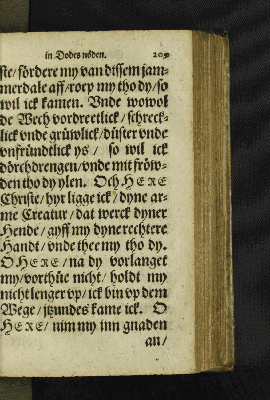 in Dodes nöden. 209
ste/ fördere my van dissem jam-
merdale aff/ roep my tho dy/ so
wil ick kamen. Vnde wowol
de Wech vordreetlick/ schreck-
lick vnde grüwlick/ düster vnde
vnfründtlick ys/ so wil ick
dörchdrengen/ vnde mit fröw-
den tho dy ylen. Och HERE
Christe/ hyr ligge ick/ dyne ar-
me Creatur/ dat werck dyner
Hende/ gyff my dyne rechtere
Handt/ vnde thee my tho dy.
O HERE/ na dy vorlanget
my/ vorthüe nicht/ holdt my
nicht lenger vp/ ick bin vp dem
Wege/ jtzundes kame ick. O
HERE/ nim my inn gnaden
an/